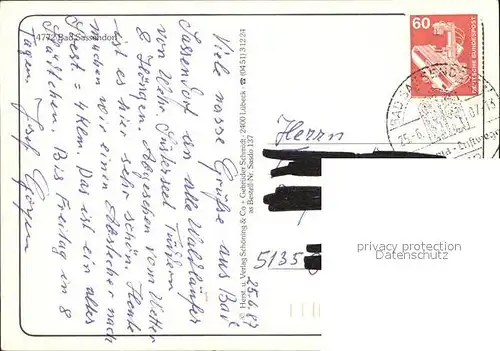 4772 Bad Sassendorf
25.6.87
Viele nasse Grüße aus Bad
Sassendorf an alle Waldläufer
von
& Jürgen Abgesehen vom Wetter
ist es hier sehr schön. Heute
machen wir einen Abstecher nach
Soest = 4 Klm. Das ist ein altes
Städtchen. Bis Freitag in 8
Tagen
© Herst. u. Verlag Schöning & Co + Gebrüder Schmidt · 2400 Lübeck · ☎ (0451) 3 12 24
Bestell-Nr. Sasdo 137
60
DEUTSCHE BUNDESPOST
BAD SASSENDORF
25.-6.
Herrn
5135
privacy protection
Datenschutz